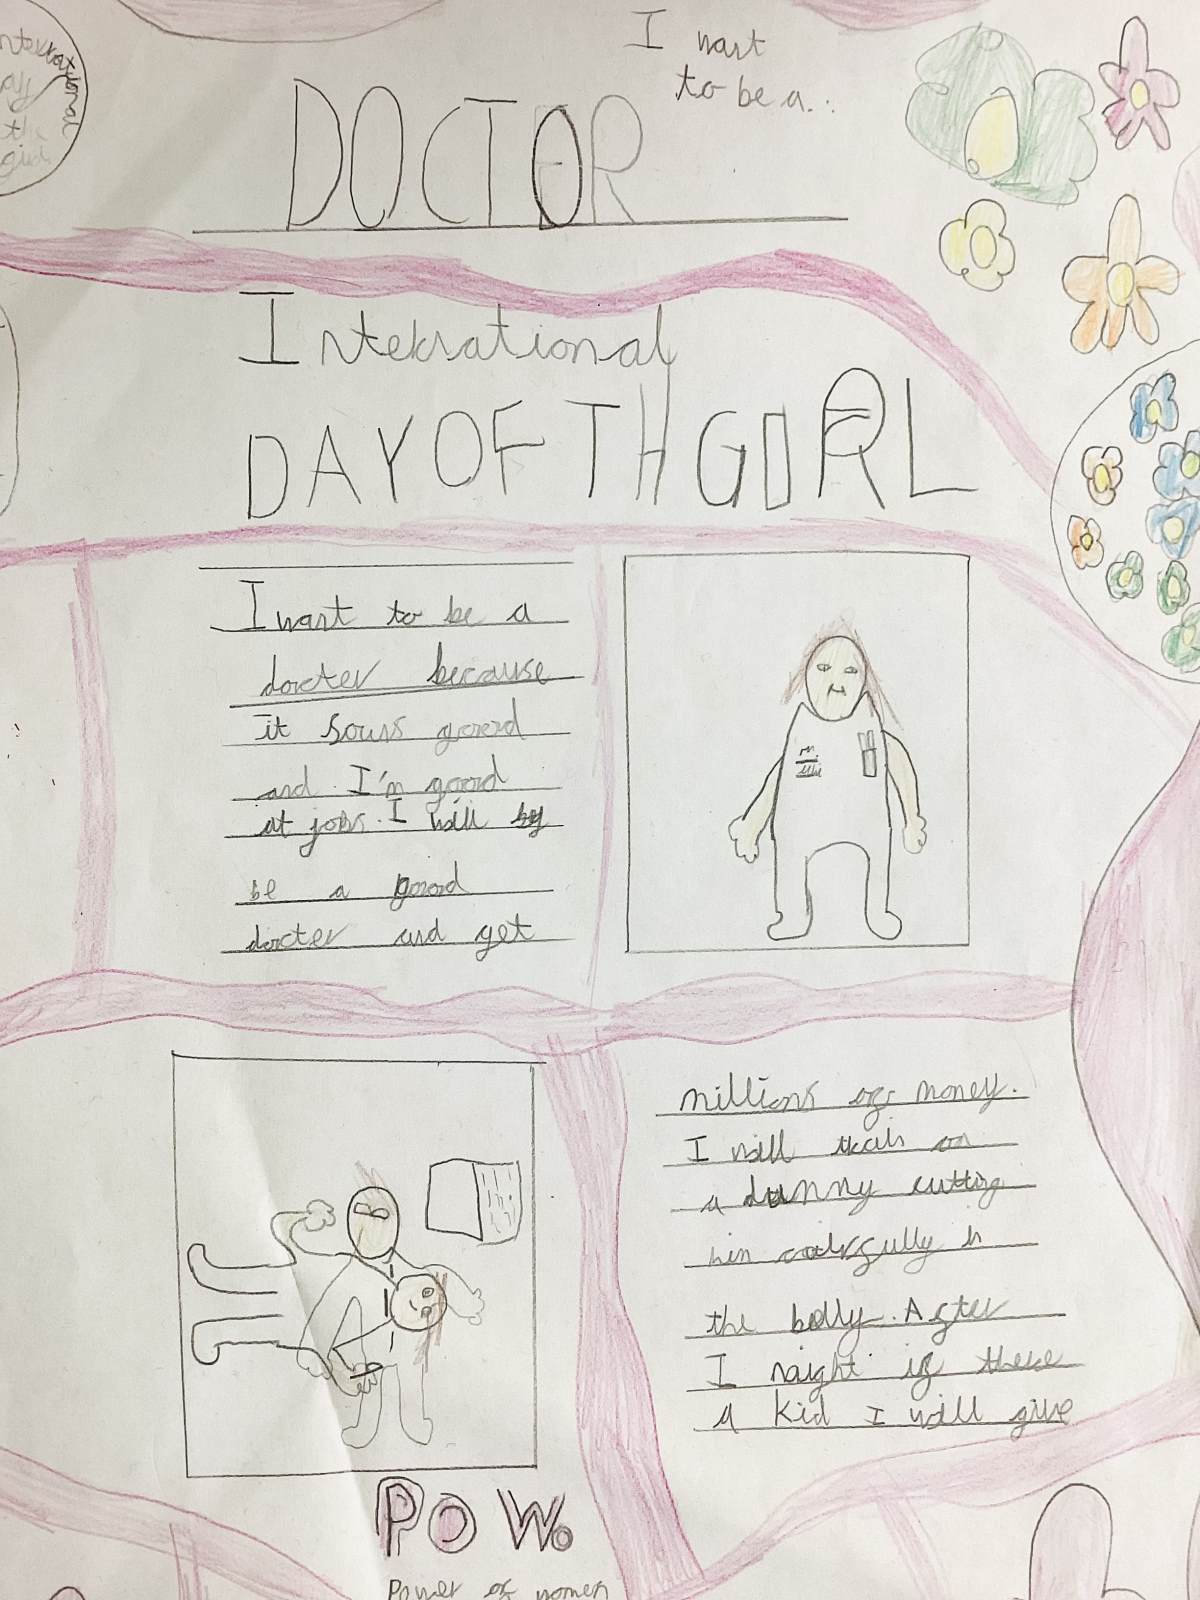 I want
to be a..
DOCTOR
Intekrational
DAY OF TH GIRL
I want to be a
docter because
it souns goord
and I'm good
at jobs. I will by
be a good
docter and get
millions of money.
I will on
a dummy cutting
him in
the belly. After
I might if there
a kid I will give
POW.
Power of women
Intekrational